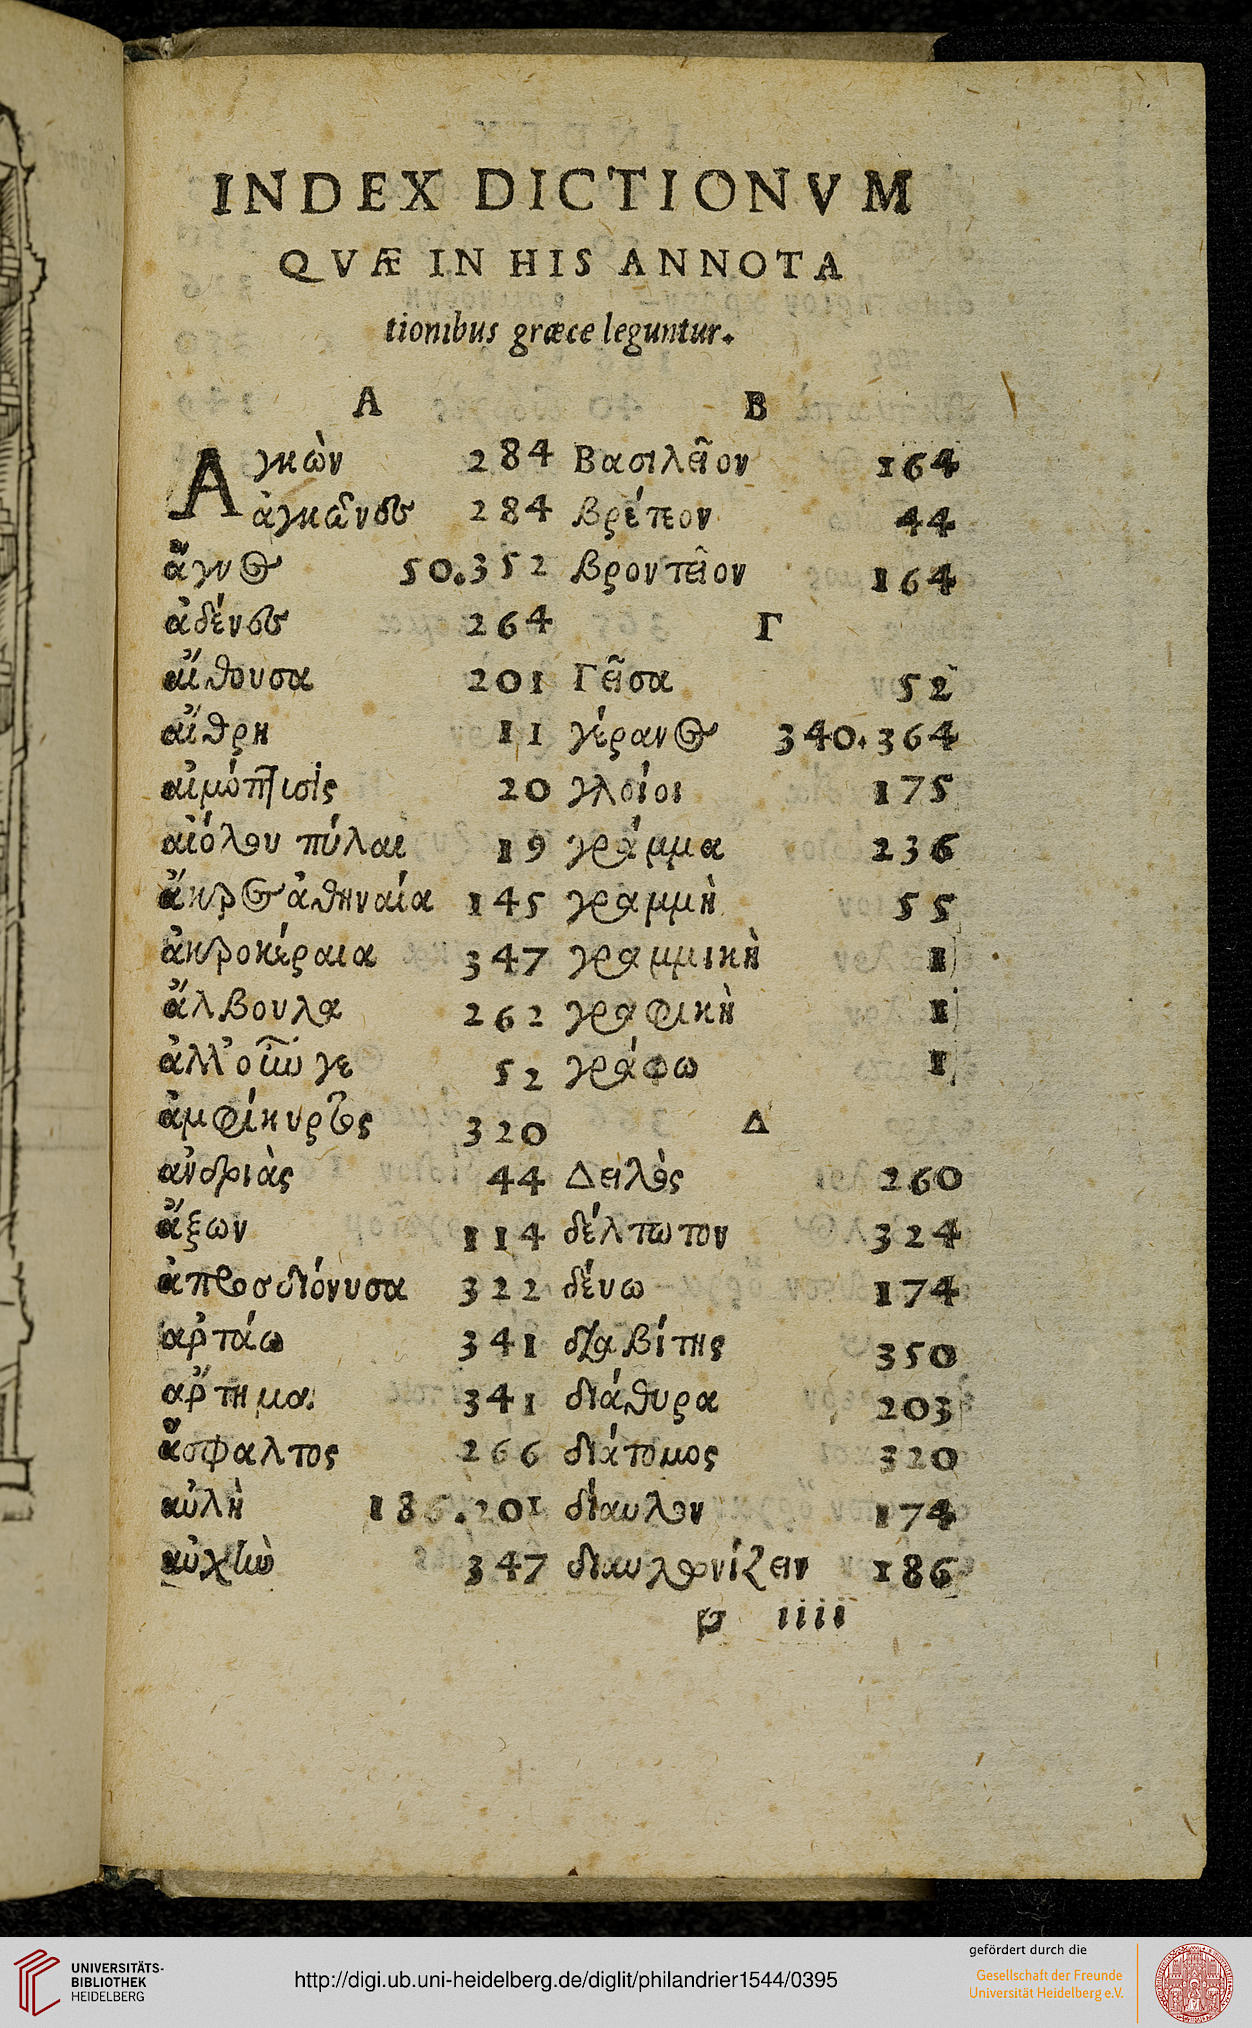 INDEX DICTIONVM
QVÆ IN HIS ANNOTA
tionibus græce leguntur.
A
Αγκὼν 284
ἀγκῶνες 284
ἄγνος 50.352
ἀδένες 264
αἴθουσα 201
αἴθρη 11
αἱμόπτισις 20
αἰόλου πύλαι 19
ἄκρος ἀθηναία 145
ἀκροκέραια 347
ἄλβουλα 262
52
ἀμφίκυρτος 320
ἀνδριὰς 44
ἄξων 114
ἀπροσδιόνυσα 322
ἀρτάω 341
ἄρτημα 341
ἄσφαλτος 266
αὐλὴ 186.201
αὐχὴν 347
B
Βασιλεῖον 164
βρέπεον 44
βροντεῖον 164
Γ
Γεῖσα 52
γέρανος 340.364
γλοίοι 175
γράμμα 236
γραμμὴ 55
γραμμικὴ 1
γραφικὴ 1
γράφω 1
Δ
Δειλὸς 260
δέλτωτον 324
δεύω 174
διαβίτης 350
διάθυρα 203
διάτομος 320
δίαυλον 174
διαυλωνίζειν 186
iiii
UNIVERSITÄTS-
BIBLIOTHEK
HEIDELBERG
http://digi.ub.uni-heidelberg.de/diglit/philandrier1544/0395
gefördert durch die
Gesellschaft der Freunde
Universität Heidelberg e.V.